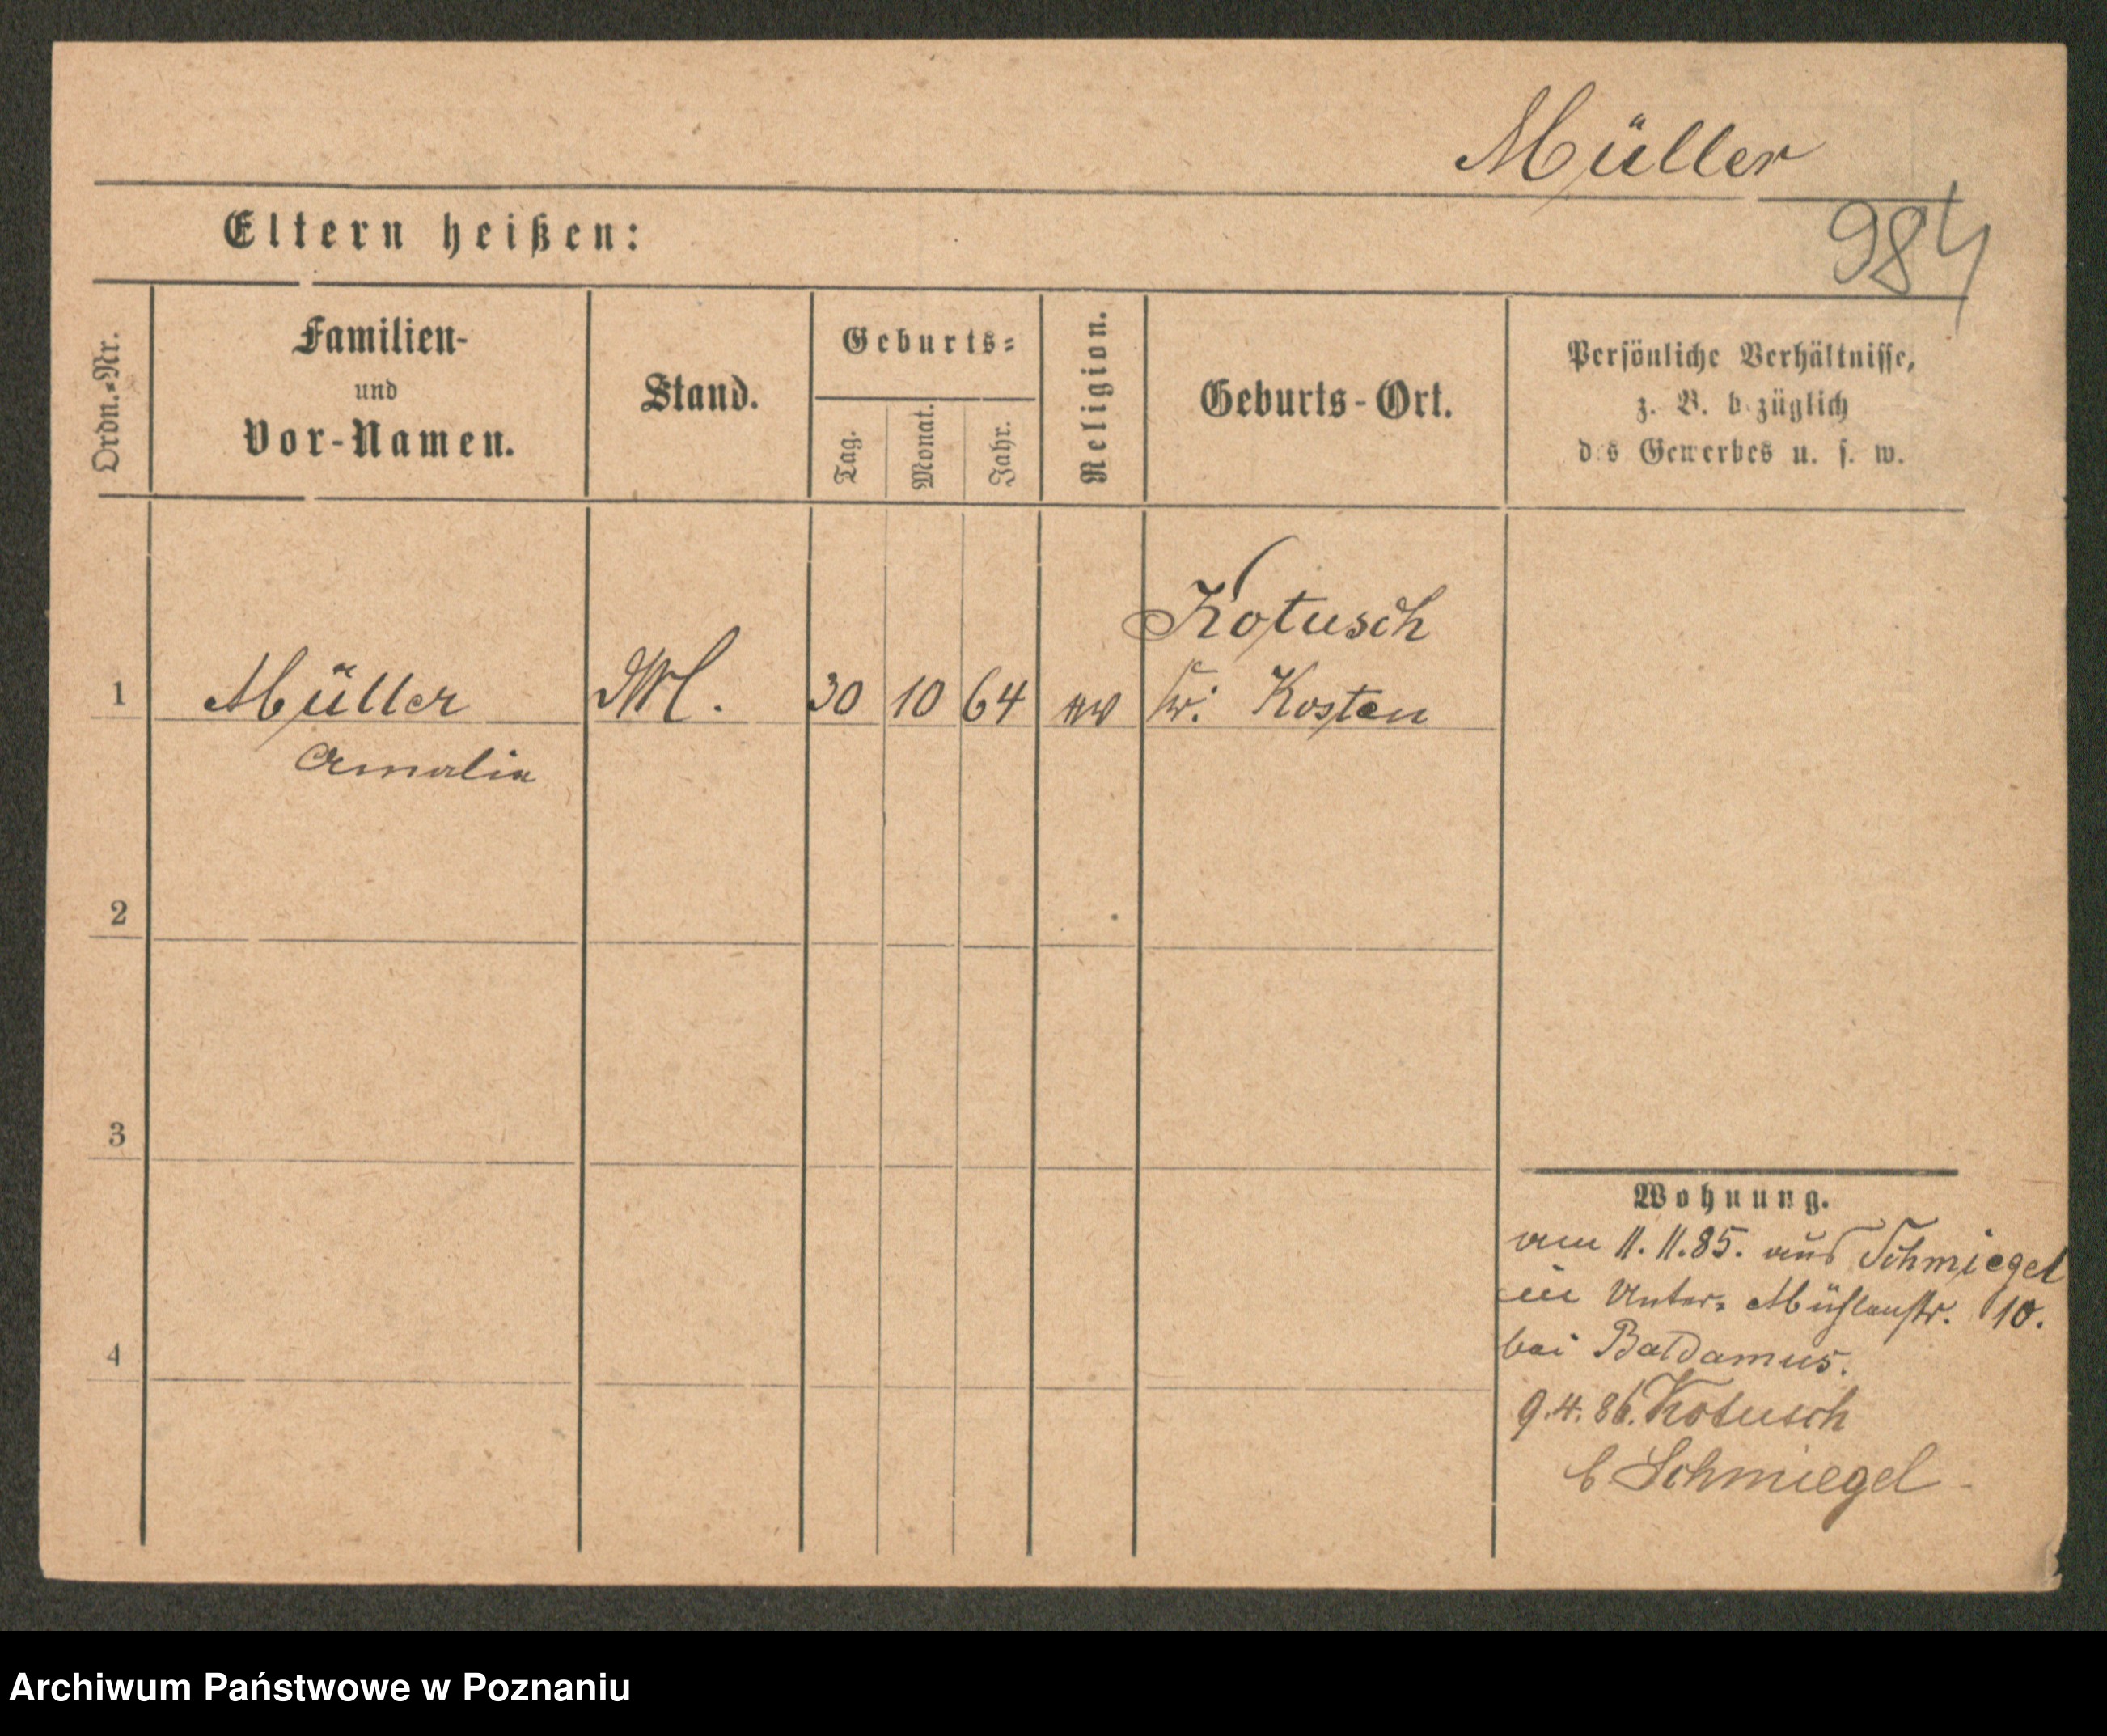 Müller
984
Eltern heißen:
Ordn.=Nr.
Familien-
und
Vor-Namen.
Stand.
Geburts=
Tag.
Monat.
Jahr.
Religion.
Geburts-Ort.
Persönliche Verhältnisse,
z. B. bezüglich
des Gewerbes u. s. w.
Kotusch
1 Müller 30 10 64 Kr. Kosten
Amalia
2
3
4
Wohnung.
am 11.11.85. aus Schmiegel
in Unter= Mühlenstr. 10.
bei Baldamus.
9.4.86. Kotusch
b Schmiegel
Archiwum Państwowe w Poznaniu